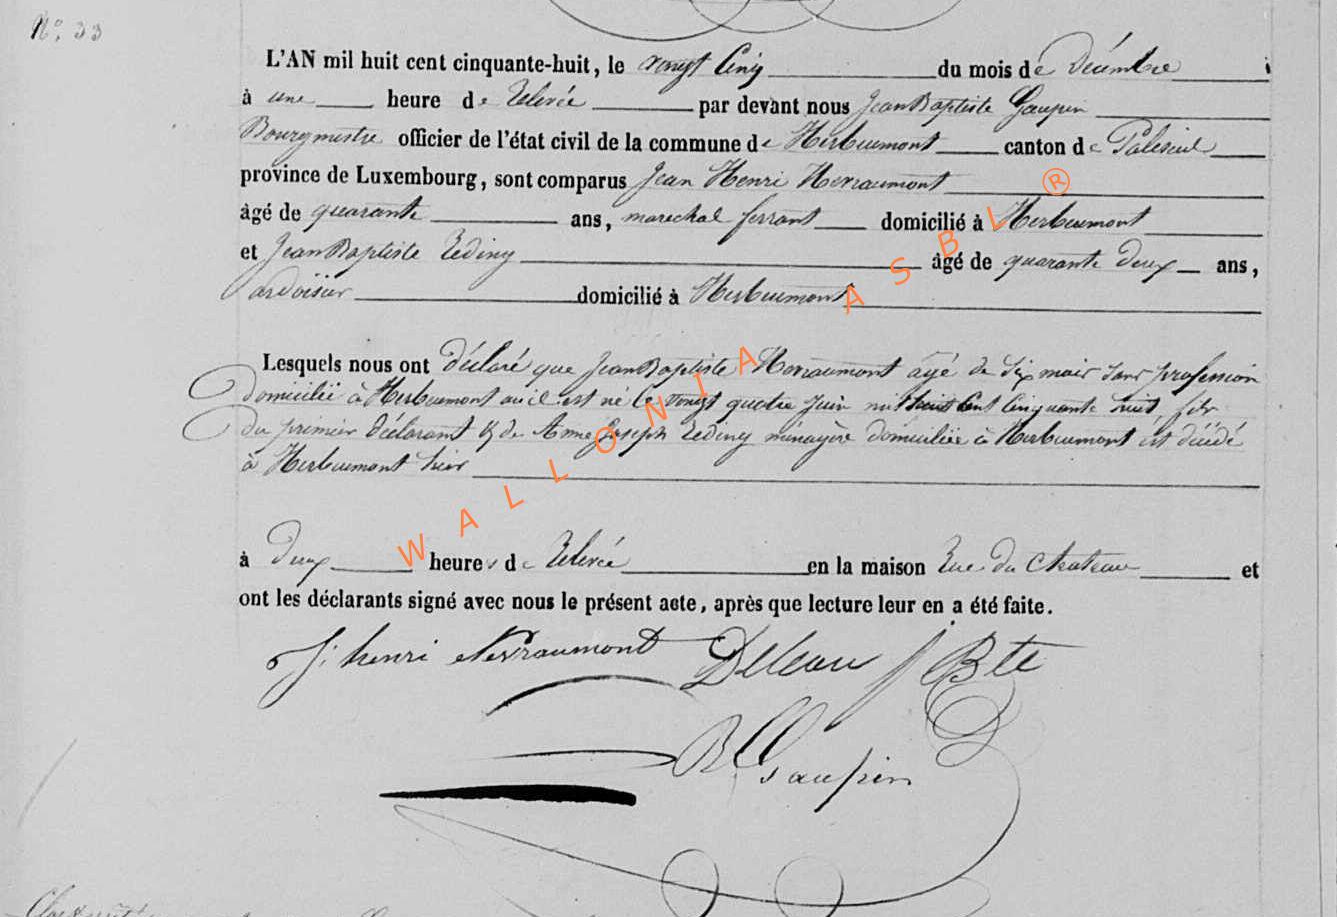 N° 33
L'AN mil huit cent cinquante-huit, le vingt Cinq du mois de Décembre
à une heure de Relevée par devant nous Jean Baptiste Gaupin
Bourgmestre officier de l'état civil de la commune de Herbeumont canton de Paliseul
province de Luxembourg, sont comparus Jean Henri Nerraumont
âgé de quarante ans, marechal ferrant domicilié à Herbeumont
et Jean Baptiste âgé de quarante deux ans,
ardoisier domicilié à Herbeumont
Lesquels nous ont déclaré que Jean Baptiste Nerraumont agé de six mois sans profession
domicilié à Herbeumont où il est né le vingt quatre Juin mil huit Cent Cinquante huit, fils
du premier déclarant & de Anne Joseph ménagère domiciliée à Herbeumont est décédé
à Herbeumont hier
à deux heures de Relevée en la maison Rue du Chateau et
ont les déclarants signé avec nous le présent acte, après que lecture leur en a été faite.
J: henri Nerraumont JBte
Gaupin
WALLONIA ASBL ®